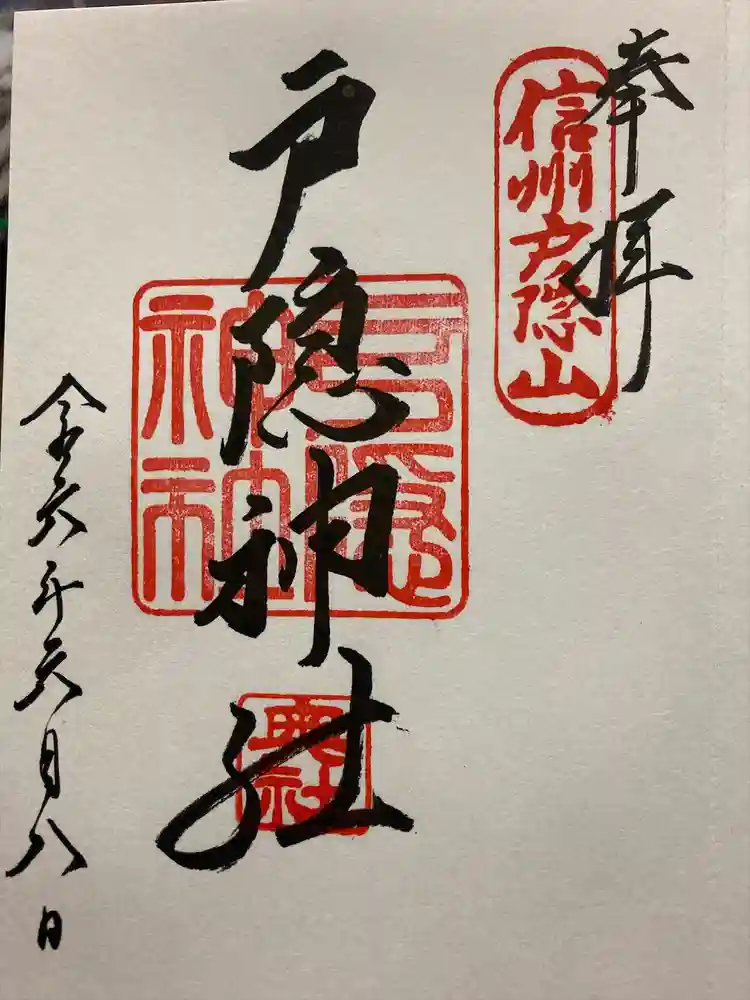 奉拝
信州戸隠山
戸隠神社
戸隠神社
令六年六月八日